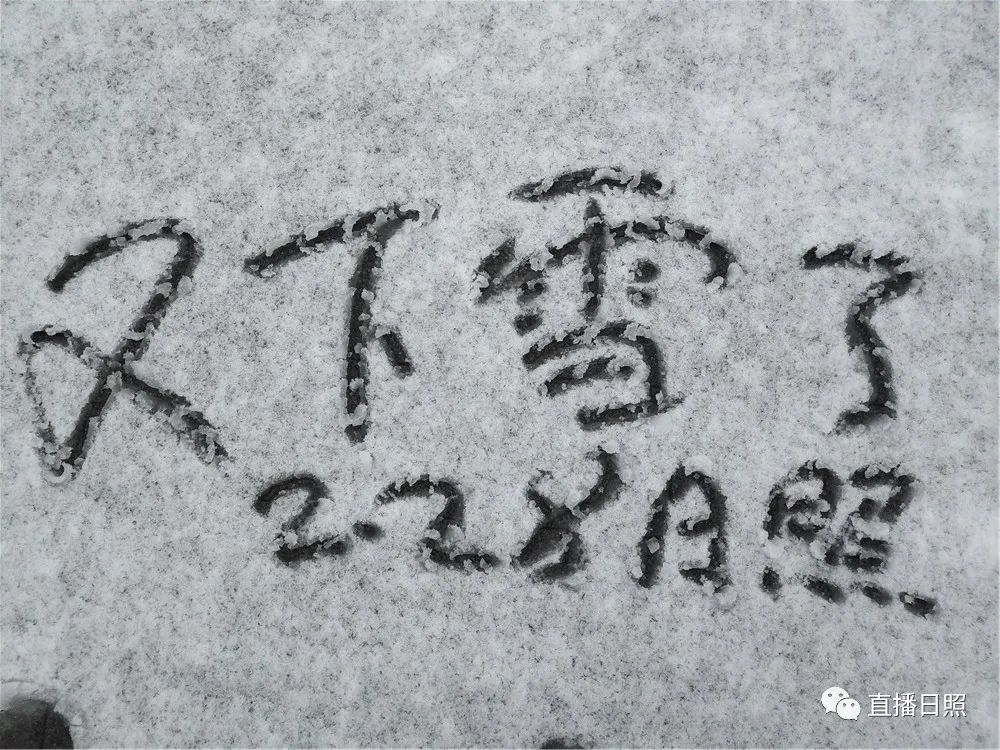 又下雪了
2.28日照
直播日照